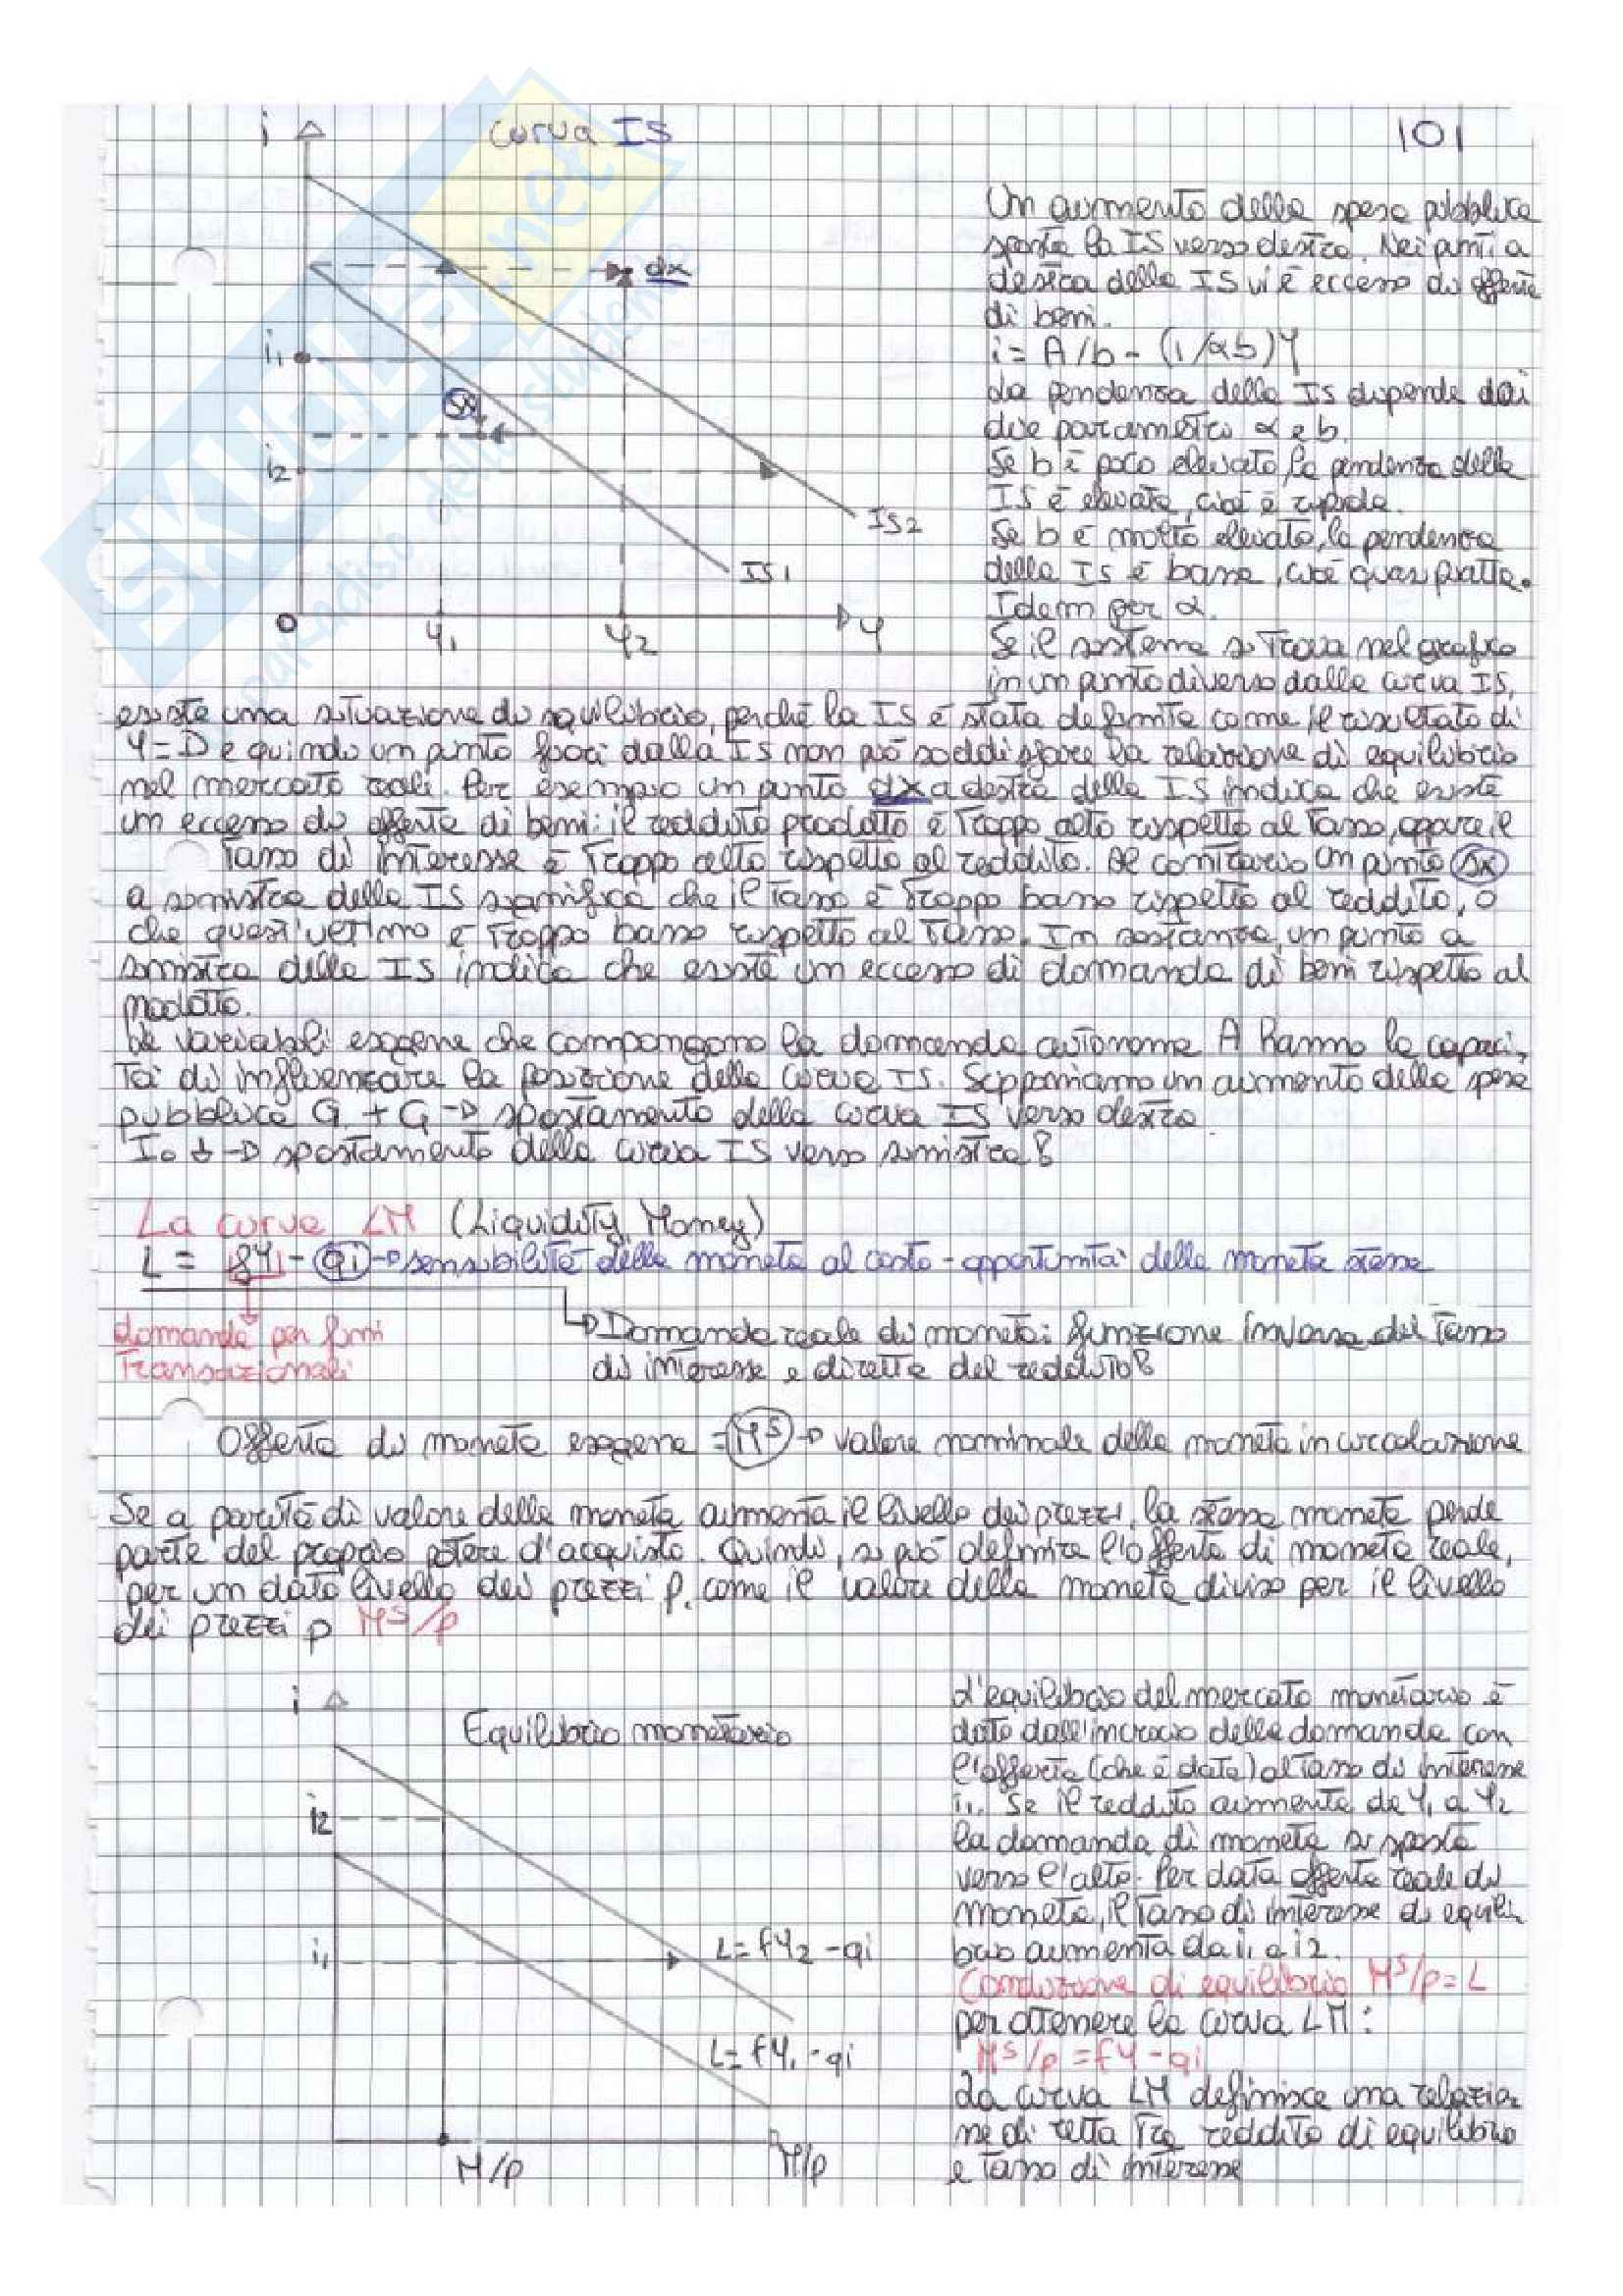 curva IS
101
i
Un aumento della spesa pubblica
sposta la IS verso destra. Nei punti a
destra della IS vi è eccesso di offerta
di beni.
i = A/b - (1/αb)Y
La pendenza della IS dipende dai
due parametri α e b.
Se b è poco elevato, la pendenza della
IS è elevata, cioè è ripida.
Se b è molto elevato, la pendenza
della IS è bassa, cioè quasi piatta.
Idem per α.
Se il sistema si trova nel grafico
in un punto diverso dalla curva IS,
dx
i1
sx
i2
IS2
IS1
0
Y1
Y2
Y
esiste una situazione di squilibrio, perché la IS è stata definita come il risultato di
Y=D e quindi un punto fuori dalla IS non può soddisfare la relazione di equilibrio
nel mercato reali. Per esempio un punto dx a destra della IS indica che esiste
un eccesso di offerta di beni: il reddito prodotto è troppo alto rispetto al tasso, oppure il
tasso di interesse è troppo alto rispetto al reddito. Al contrario un punto sx
a sinistra della IS significa che il tasso è troppo basso rispetto al reddito, o
che quest'ultimo è troppo basso rispetto al tasso. In sostanza, un punto a
sinistra della IS indica che esiste un eccesso di domanda di beni rispetto al
prodotto.
Le variabili esogene che compongono la domanda autonoma A hanno la capaci-
tà di influenzare la posizione della curva IS. Supponiamo un aumento della spesa
pubblica G. +G → spostamento della curva IS verso destra.
I0 ↓ → spostamento della curva IS verso sinistra
La curva LM (Liquidity Money)
L = fY - qi → sensibilità della moneta al costo-opportunità della moneta stessa
domanda per fini
transazionali
Domanda reale di moneta: funzione inversa del tasso
di interesse e diretta del reddito
Offerta di moneta esogena = Mˢ → valore nominale della moneta in circolazione
Se a parità di valore della moneta aumenta il livello dei prezzi, la stessa moneta perde
parte del proprio potere d'acquisto. Quindi, si può definire l'offerta di moneta reale,
per un dato livello dei prezzi p, come il valore della moneta diviso per il livello
dei prezzi p Mˢ/p
i
Equilibrio monetario
i2
i1
L=fY2-qi
L=fY1-qi
M/p
M/p
L'equilibrio del mercato monetario è
dato dall'incrocio della domanda con
l'offerta (che è data) al tasso di interesse
i1. Se il reddito aumenta da Y1 a Y2
la domanda di moneta si sposta
verso l'alto. Per data offerta reale di
moneta, il tasso di interesse di equili-
brio aumenta da i1 a i2.
Condizione di equilibrio Mˢ/p=L
per ottenere la curva LM:
Mˢ/p = fY-qi
La curva LM definisce una relazio-
ne diretta tra reddito di equilibrio
e tasso di interesse
SKUOLA.net
paradiso dello studente